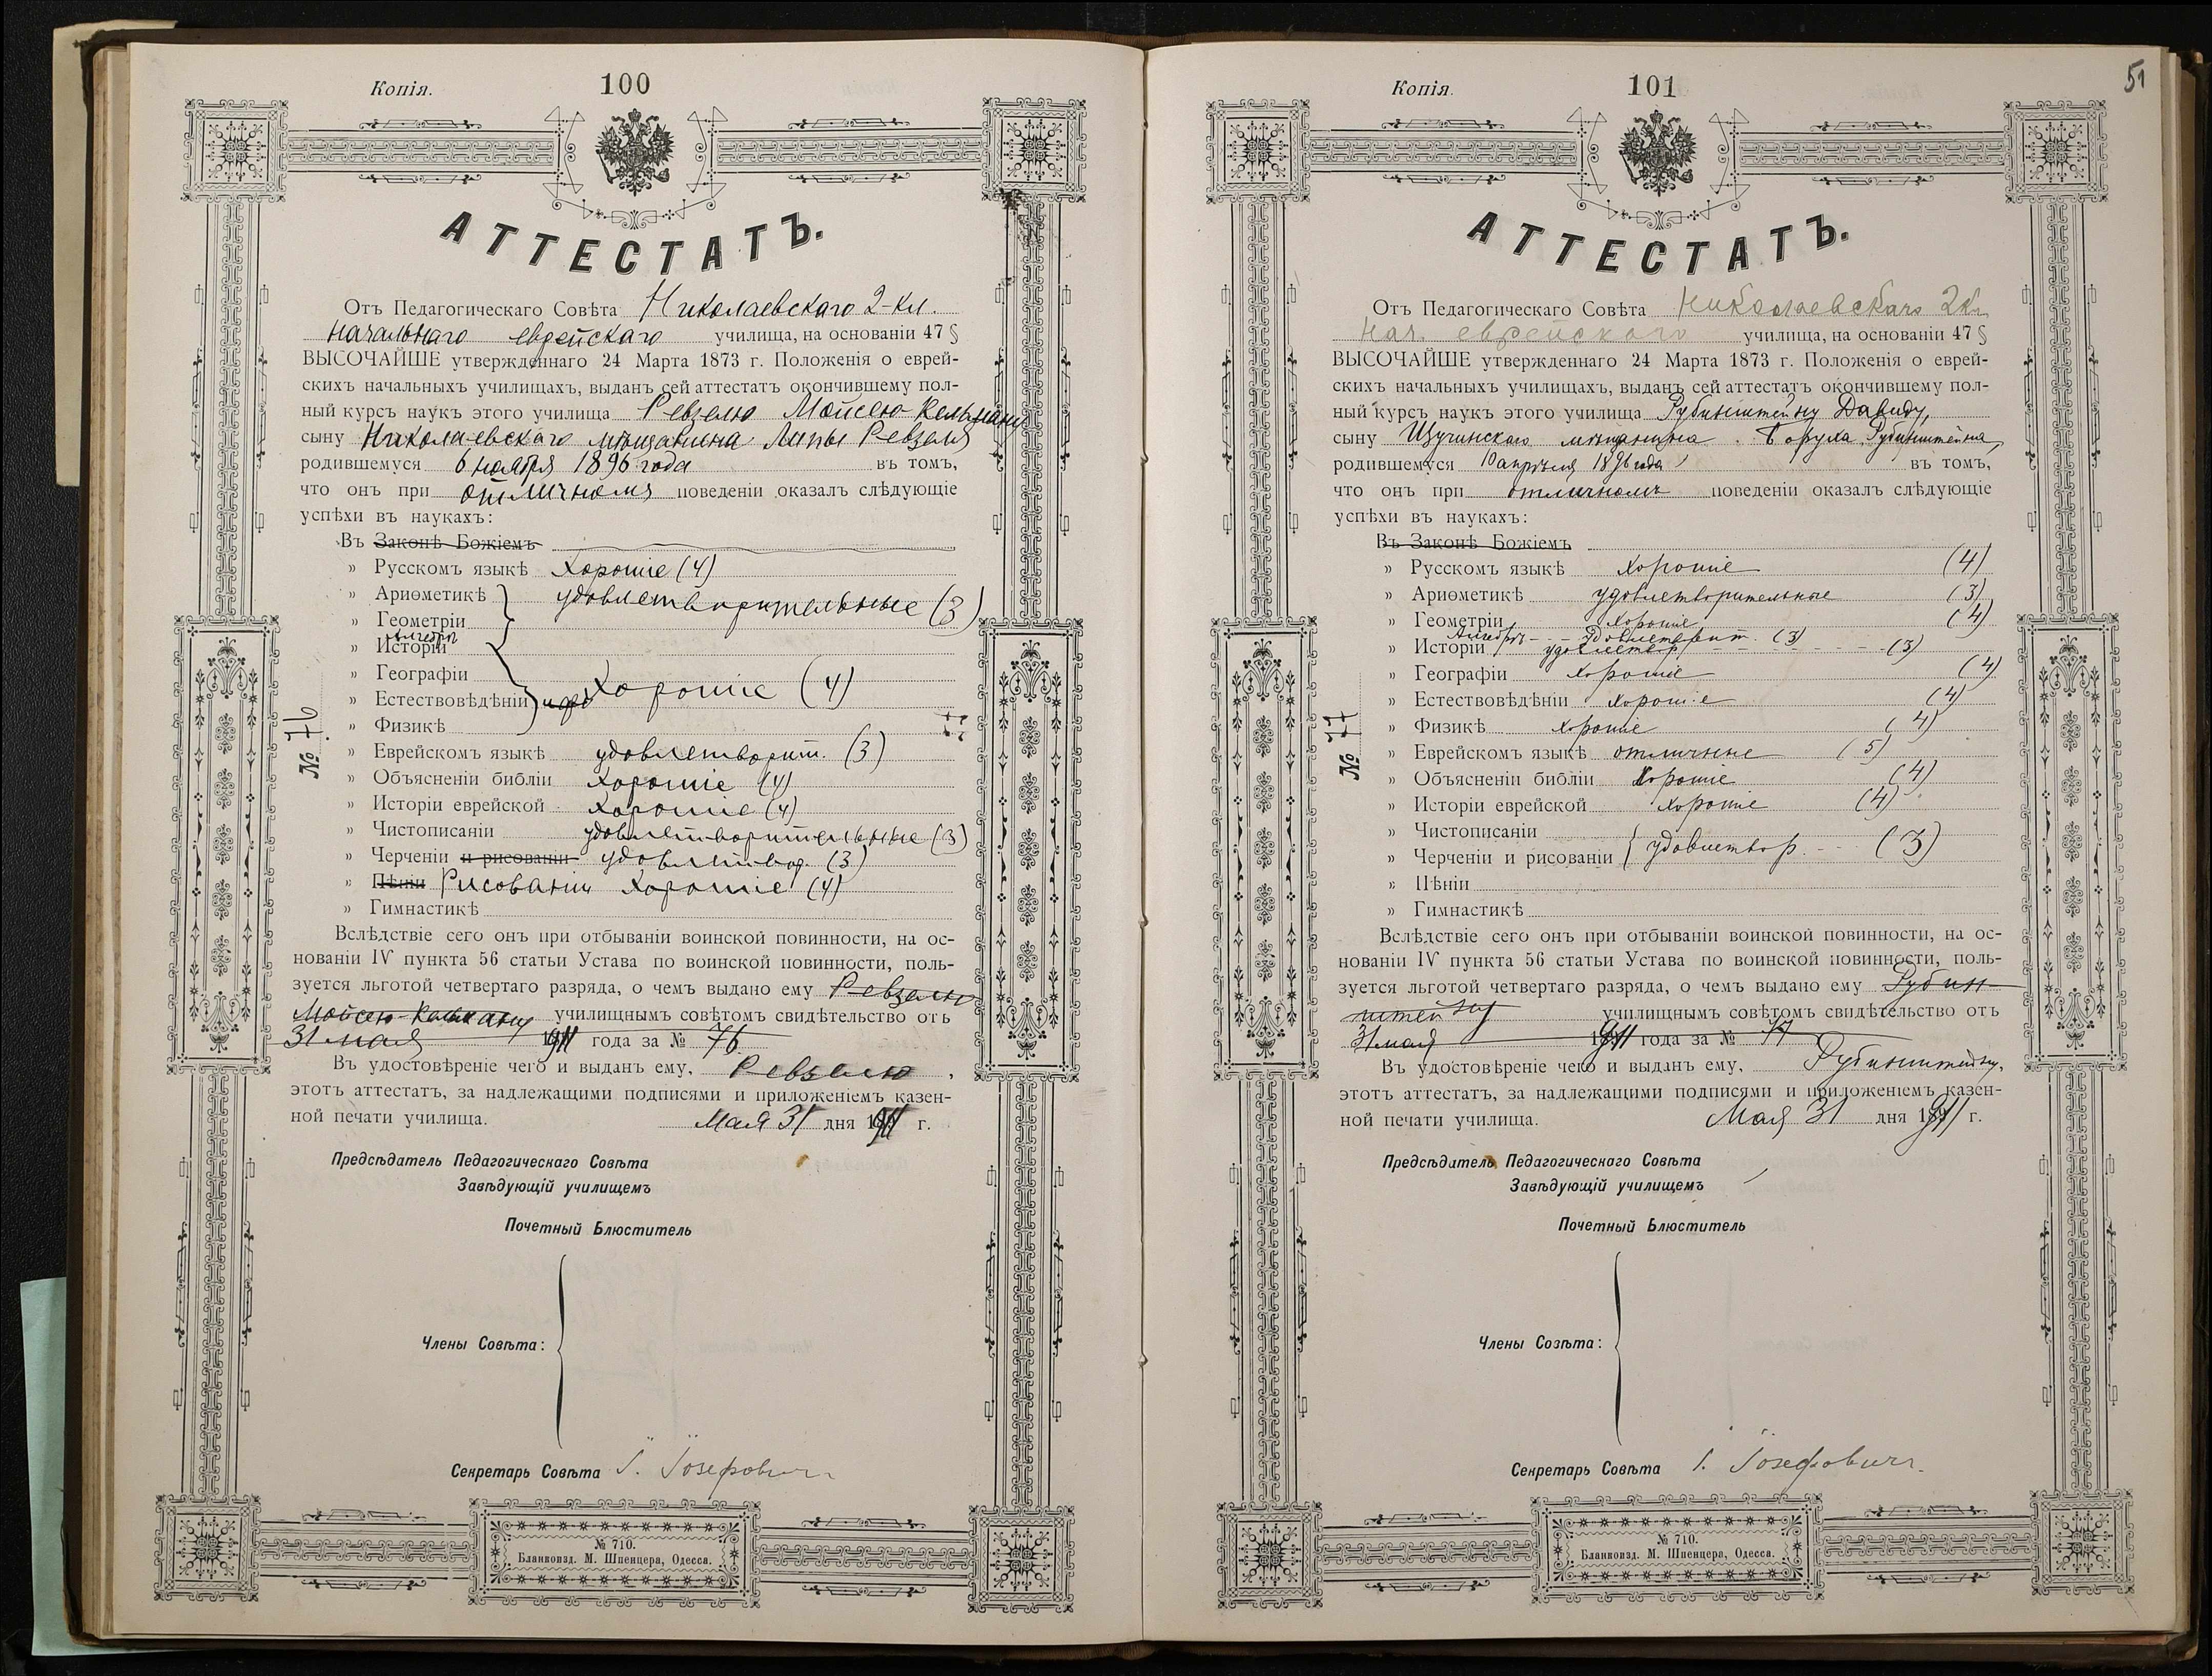 Копія.
100
АТТЕСТАТЪ.
Отъ Педагогическаго Совѣта Николаевскаго 2-кл.
начальнаго еврейскаго училища, на основаніи 47 §
ВЫСОЧАЙШЕ утвержденнаго 24 Марта 1873 г. Положенія о еврей-
скихъ начальныхъ училищахъ, выданъ сей аттестатъ окончившему пол-
ный курсъ наукъ этого училища Ревзелю Мойсею-Кельману
сыну Николаевскаго мѣщанина Липы Ревзеля
родившемуся 6 ноября 1896 года въ томъ,
что онъ при отличномъ поведеніи оказалъ слѣдующіе
успѣхи въ наукахъ:
Въ Законѣ Божіемъ
» Русскомъ языкѣ хорошіе (4)
» Ариѳметикѣ удовлетворительные (3)
» Геометріи
Алгебрѣ
» Исторіи
» Географіи
» Естествовѣдѣніи хорошіе (4)
» Физикѣ
» Еврейскомъ языкѣ удовлетворит. (3)
» Объясненіи библіи хорошіе (4)
» Исторіи еврейской хорошіе (4)
» Чистописаніи удовлетворительные (3)
» Черченіи и рисованіи удовлетвор. (3)
» Пѣніи Рисованіи хорошіе (4)
» Гимнастикѣ
№ 76
Вслѣдствіе сего онъ при отбываніи воинской повинности, на ос-
нованіи IV пункта 56 статьи Устава по воинской повинности, поль-
зуется льготой четвертаго разряда, о чемъ выдано ему Ревзелю
Мойсею-Кельману училищнымъ совѣтомъ свидѣтельство отъ
31 мая 1911 года за № 76
Въ удостовѣреніе чего и выданъ ему, Ревзелю,
этотъ аттестатъ, за надлежащими подписями и приложеніемъ казен-
ной печати училища. Мая 31 дня 1911 г.
Предсѣдатель Педагогическаго Совѣта
Завѣдующій училищемъ
Почетный Блюститель
Члены Совѣта:
Секретарь Совѣта І. Іозефовичъ
№ 710.
Бланкоизд. М. Шпенцера, Одесса.
Копія.
101
51
АТТЕСТАТЪ.
Отъ Педагогическаго Совѣта Николаевскаго 2кл
нач. еврейскаго училища, на основаніи 47 §
ВЫСОЧАЙШЕ утвержденнаго 24 Марта 1873 г. Положенія о еврей-
скихъ начальныхъ училищахъ, выданъ сей аттестатъ окончившему пол-
ный курсъ наукъ этого училища Рубинштейну Давиду,
сыну Щучинскаго мѣщанина Боруха Рубинштейна,
родившемуся 10 апрѣля 1896 года въ томъ,
что онъ при отличномъ поведеніи оказалъ слѣдующіе
успѣхи въ наукахъ:
Въ Законѣ Божіемъ
» Русскомъ языкѣ хорошіе (4)
» Ариѳметикѣ удовлетворительные (3)
» Геометріи хорошіе (4)
Алгебрѣ - - удовлетворит. (3)
» Исторіи удовлетвор. (3)
» Географіи хорошіе (4)
» Естествовѣдѣніи хорошіе (4)
» Физикѣ хорошіе (4)
» Еврейскомъ языкѣ отличные (5)
» Объясненіи библіи хорошіе (4)
» Исторіи еврейской хорошіе (4)
» Чистописаніи
» Черченіи и рисованіи удовлетвор. -- (3)
» Пѣніи
» Гимнастикѣ
№ 77
Вслѣдствіе сего онъ при отбываніи воинской повинности, на ос-
нованіи IV пункта 56 статьи Устава по воинской повинности, поль-
зуется льготой четвертаго разряда, о чемъ выдано ему Рубин-
штейну училищнымъ совѣтомъ свидѣтельство отъ
31 мая 1911 года за № 77
Въ удостовѣреніе чего и выданъ ему, Рубинштейну,
этотъ аттестатъ, за надлежащими подписями и приложеніемъ казен-
ной печати училища. Мая 31 дня 1911 г.
Предсѣдатель Педагогическаго Совѣта
Завѣдующій училищемъ
Почетный Блюститель
Члены Совѣта:
Секретарь Совѣта І. Іозефовичъ.
№ 710.
Бланкоизд. М. Шпенцера, Одесса.